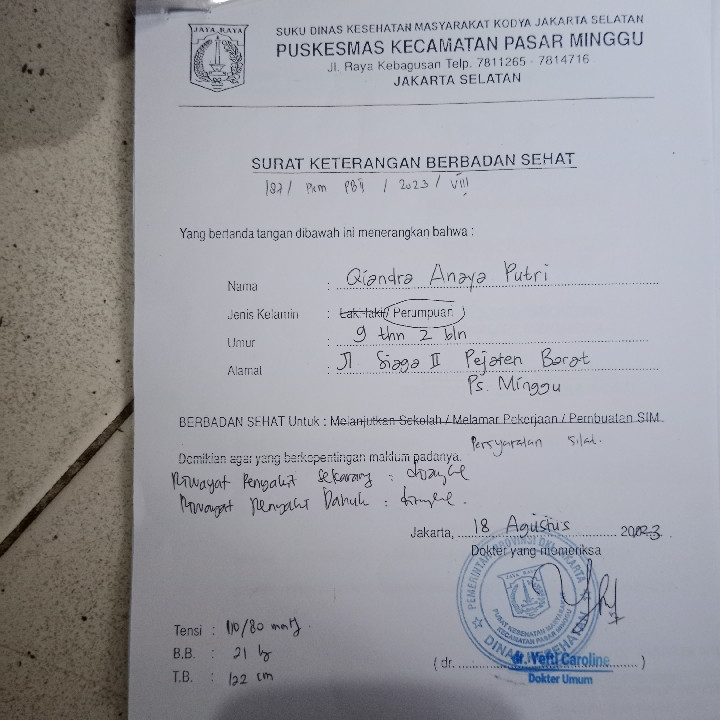 JAYA RAYA
SUKU DINAS KESEHATAN MASYARAKAT KODYA JAKARTA SELATAN
PUSKESMAS KECAMATAN PASAR MINGGU
Jl. Raya Kebagusan Telp. 7811265 - 7814716
JAKARTA SELATAN
SURAT KETERANGAN BERBADAN SEHAT
187/ PKM PBII / 2023 / VIII
Yang bertanda tangan dibawah ini menerangkan bahwa :
Nama : Qiandra Anaya Putri
Jenis Kelamin : Laki-laki / Perumpuan
Umur : 9 thn 2 bln
Alamat : Jl Siaga II Pejaten Barat
Ps. Minggu
BERBADAN SEHAT Untuk : Melanjutkan Sekolah / Melamar Pekerjaan / Pembuatan SIM
Persyaratan Silat.
Demikian agar yang berkepentingan maklum padanya.
Riwayat Penyakit Sekarang :
Riwayat Penyakit Dahulu :
Jakarta, 18 Agustus 2023
Dokter yang memeriksa
PEMERINTAH PROVINSI DKI JAKARTA
JAYA RAYA
PUSAT KESEHATAN MASYARAKAT
KECAMATAN PASAR MINGGU
DINAS KESEHATAN
Tensi : 110/80 mmHg
B.B. : 21 kg
T.B. : 122 cm
( dr. dr. Yefti Caroline )
Dokter Umum